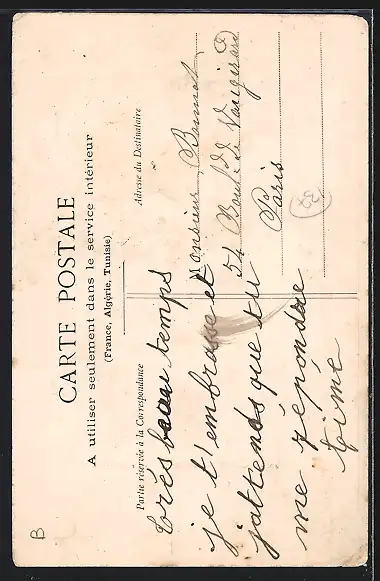 CARTE POSTALE
A utiliser seulement dans le service intérieur
(France, Algérie, Tunisie)
Partie réservée à la Correspondance
Très beau temps
je t'embrasse et
j'attends que tu
me répondre
Adresse du Destinataire
Monsieur
54 Boul. de Vaugirard
Paris
B